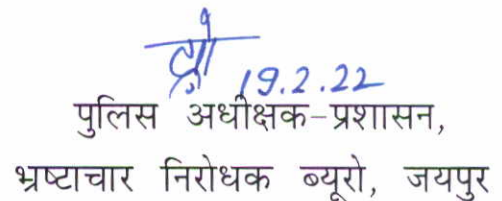 19.2.22
पुलिस अधीक्षक-प्रशासन,
भ्रष्टाचार निरोधक ब्यूरो, जयपुर